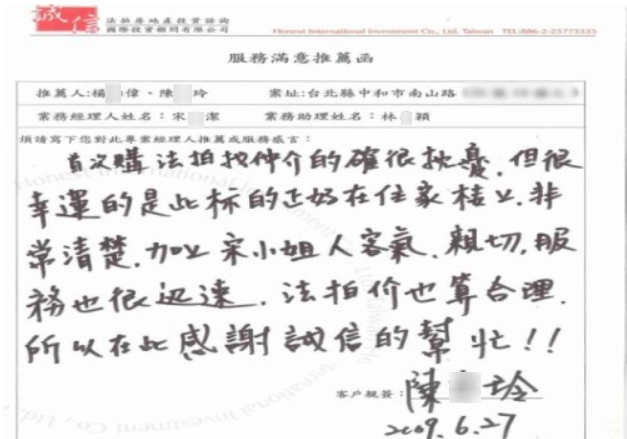 誠信 法拍房地產投資諮詢
國際投資顧問有限公司
Honest International Investment Co., Ltd. Taiwan TEL:886-2-25773333
服務滿意推薦函
推薦人:楊 偉、陳 玲 案址:台北縣中和市南山路
業務經理人姓名:宋 潔 業務助理姓名:林 穎
煩請寫下您對此專案經理人推薦或服務感言:
首次購法拍找仲介的確很擔憂,但很
幸運的是此标的正好在住家樓上,非
常清楚,加上宋小姐人客氣、親切,服
務也很迅速,法拍价也算合理,
所以在此感謝誠信的幫忙!!
客戶親簽: 陳 玲
2009.6.27